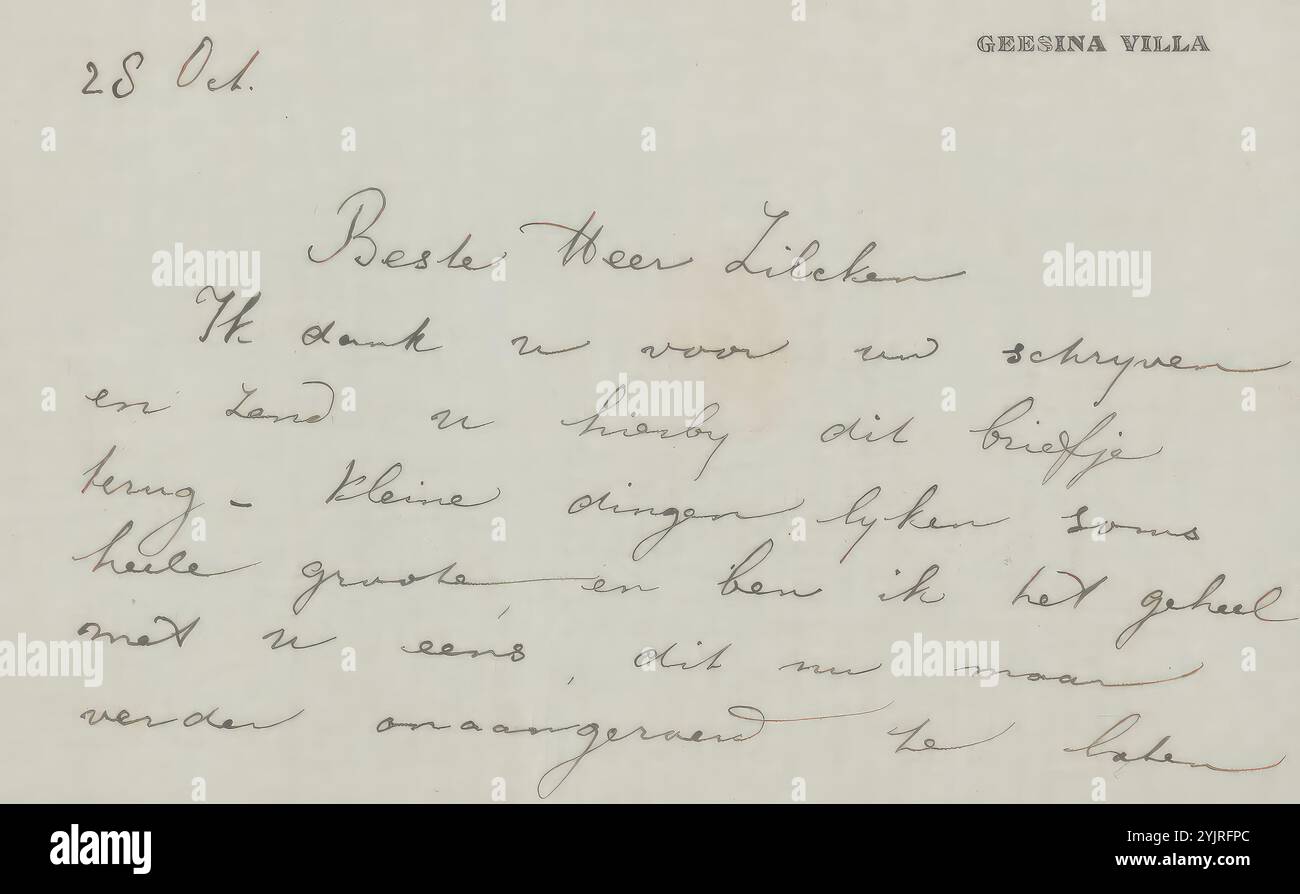 GEESINA VILLA
28 Oct.
Beste Heer Zilcken
Ik dank u voor uw schryven
en zend u hierby dit briefje
terug - kleine dingen lyken soms
heele groote, en ben ik het geheel
met u eens, dit nu maar
verder onaangeroerd te laten
alamy
Image ID: 2YJRFPC
www.alamy.com